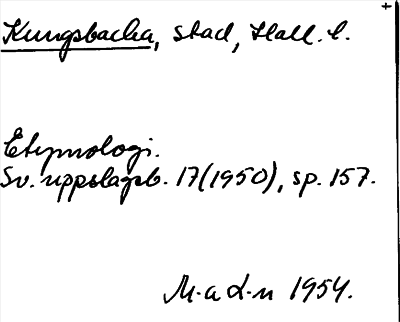 Kungsbacka, stad, Hall. l.
Etymologi.
Sv. uppslagsb. 17(1950), sp. 157.
M-a L-n 1954.